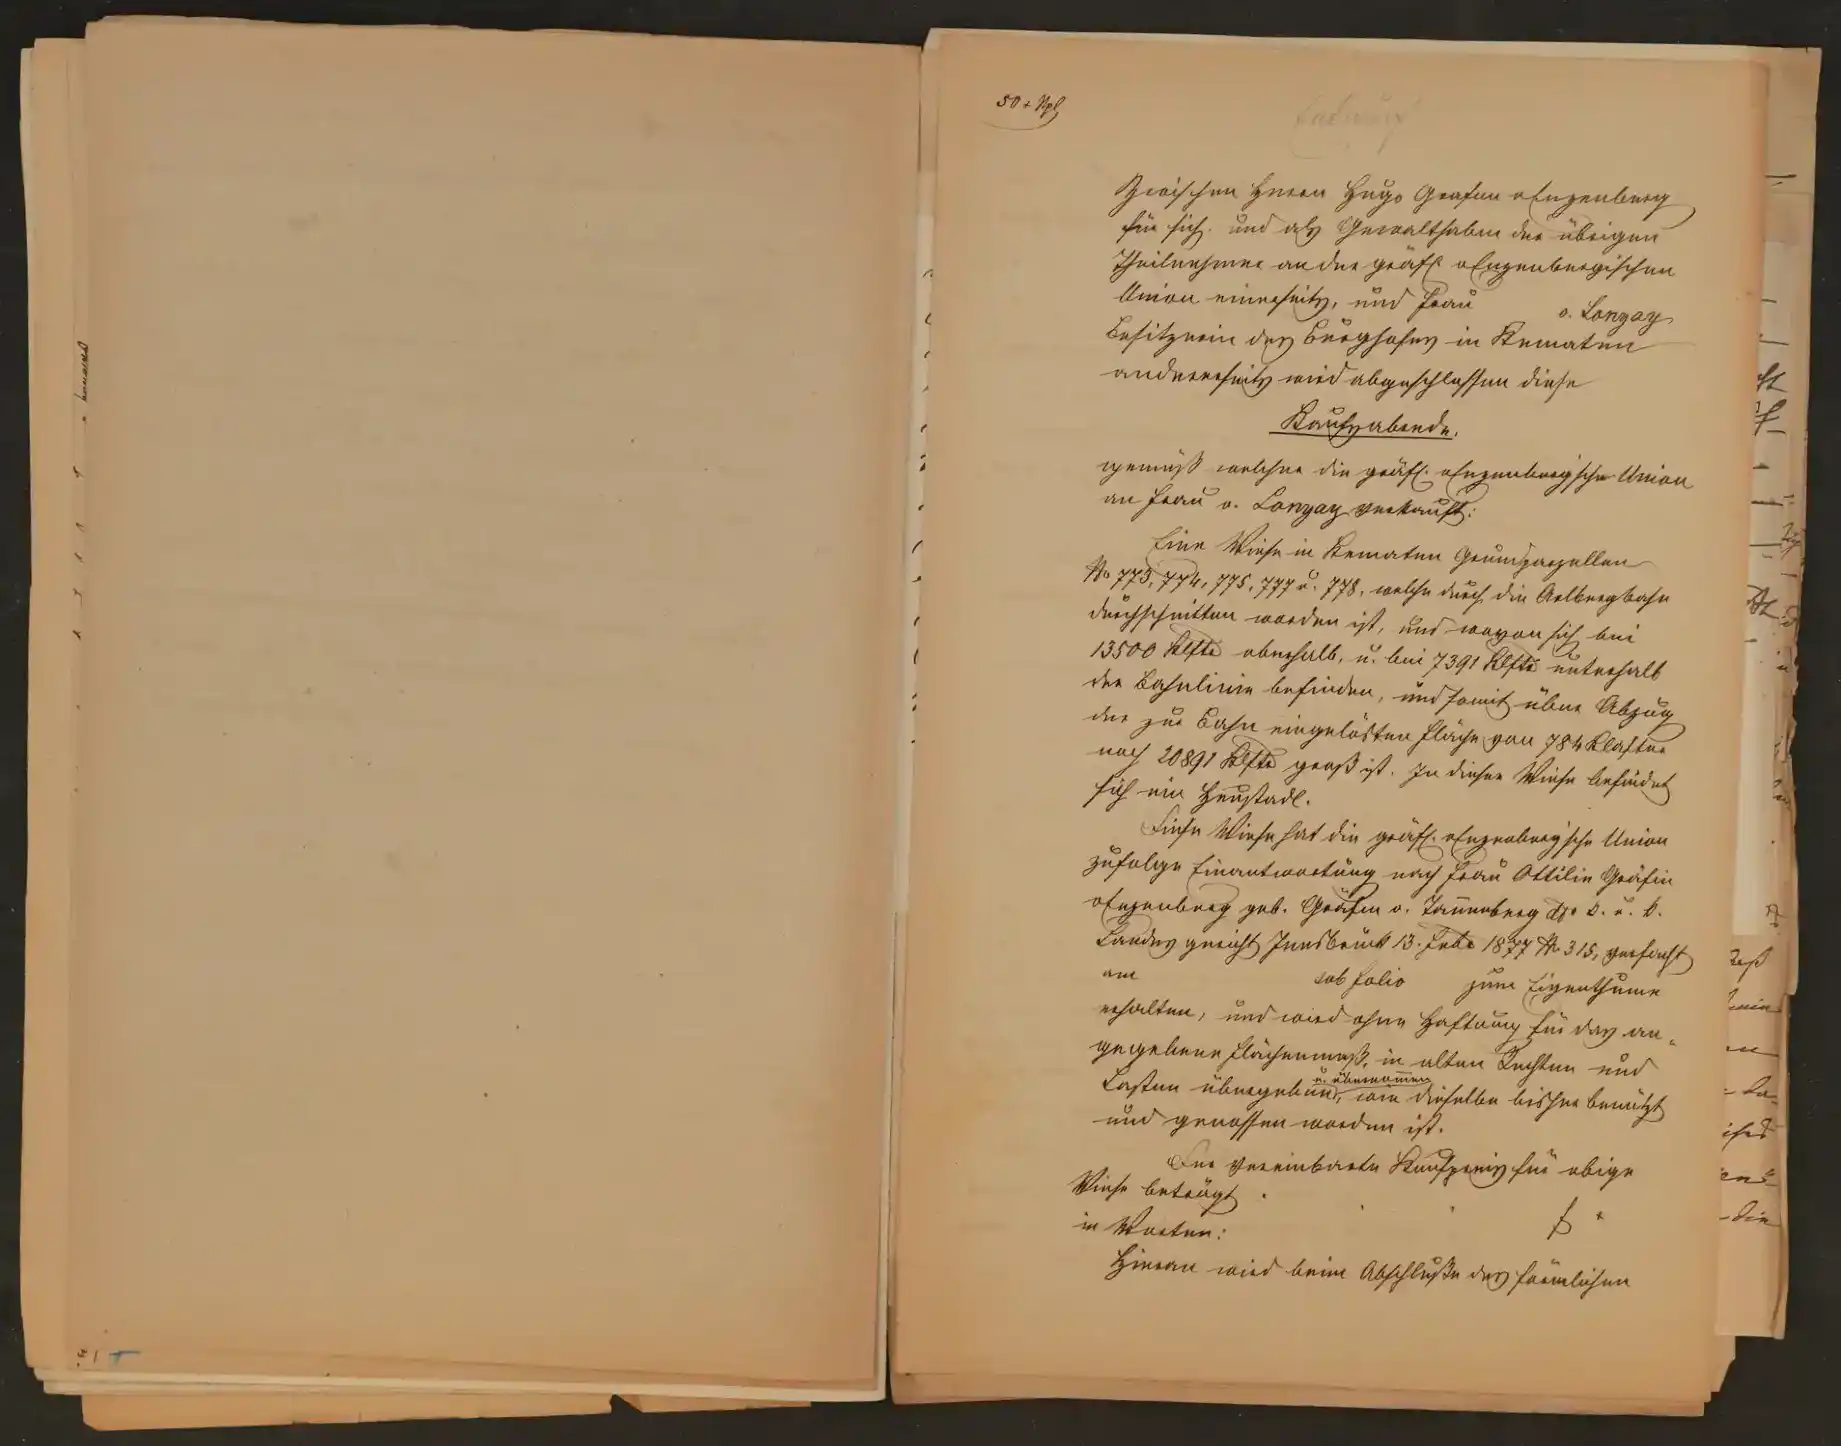 50 x Npl
Entwurf
Zwischen Herrn Hugo Grafen v Enzenberg
für sich und als Gewalthaber der übrigen
Theilnehmer an der gräfl. v Enzenbergischen
Union einerseits, und Frau v. Lonyay
Besitzerin des Burghofes in Kematen
andererseits wird abgeschlossen diese
Kaufsabrede.
gemäß welcher die gräfl. v Enzenberg'sche Union
an Frau v. Lonyay verkauft:
Eine Wiese in Kematen Grundparzellen
No 773, 774, 775, 777 u. 778, welche durch die Arlbergbahn
durchschnitten worden ist, und wovon sich bei
13500 Klftr oberhalb, u. bei 7391 Klftr unterhalb
der Bahnlinie befinden, und somit über Abzug
der zur Bahn eingelösten Fläche von 784 Klafter
noch 20891 Klftr groß ist. In dieser Wiese befindet
sich ein Heustadl.
Diese Wiese hat die gräfl. v Enzenberg'sche Union
zufolge Einantwortung nach Frau Ottilie Gräfin
v Enzenberg geb. Gräfin v. Tannenberg k. k.
Landesgericht Innsbruck 13. Febr 1877 No 315, verfacht
am sub folio zum Eigenthume
erhalten, und wird ohne Haftung für das an-
gegebene Flächenmaß, in alten Rechten und
Lasten übergeben u. übernommen, wie dieselbe bisher benützt
und genossen worden ist.
Der vereinbarte Kaufpreis für obige
Wiese beträgt
in Worten: f
Hieran wird beim Abschluße des förmlichen